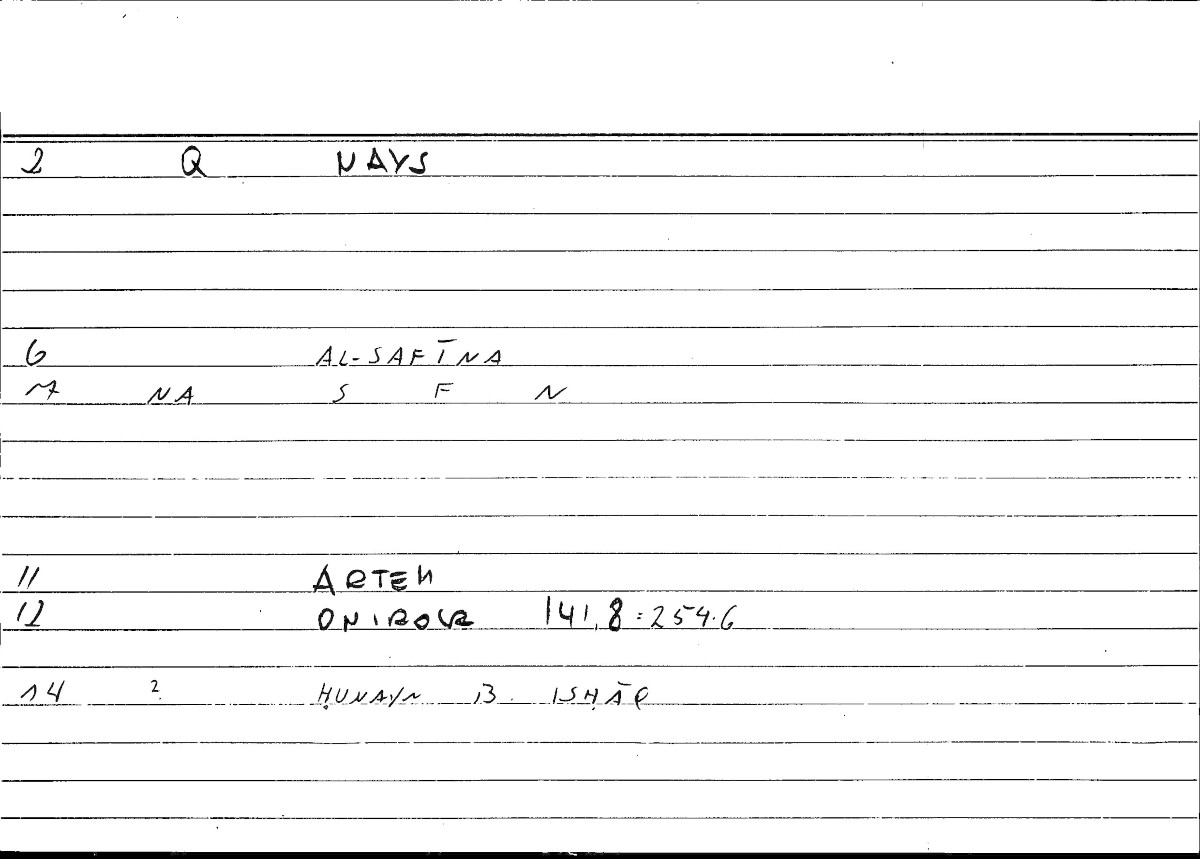 2 Q NAYS
6 AL-SAFĪNA
7 NA S F N
11 ARTEM
12 ONIROCR 141,8 = 254.6
14 2 ḤUNAYN B. ISḤĀQ